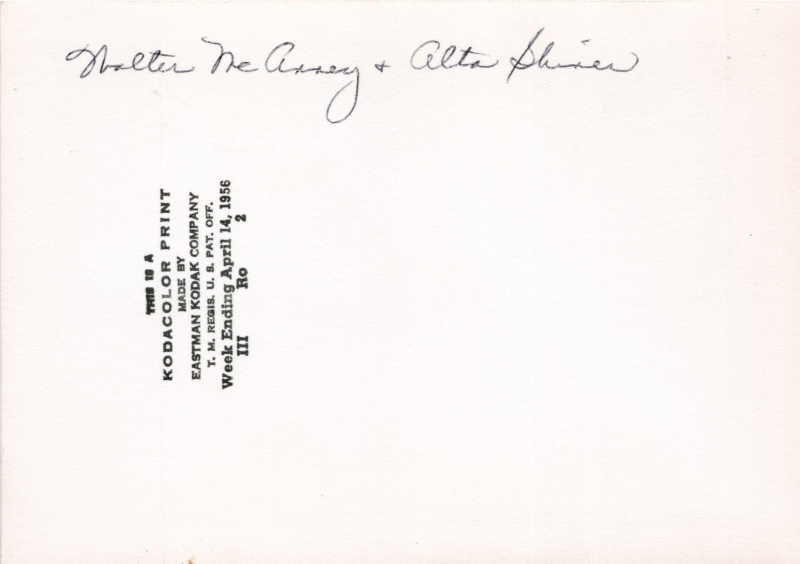 Walter McAnney + Alta Shiner
THIS IS A
KODACOLOR PRINT
MADE BY
EASTMAN KODAK COMPANY
T. M. REGIS. U. S. PAT. OFF.
Week Ending April 14, 1956
III Ro 2